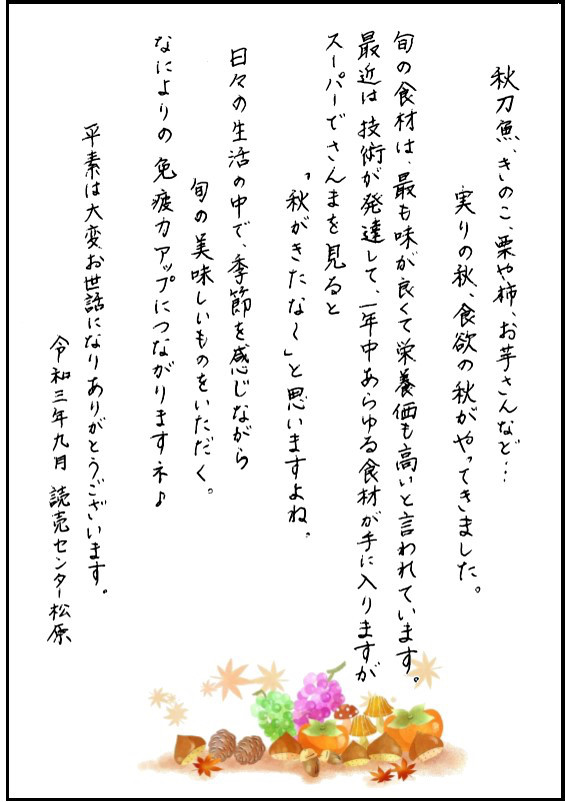 秋刀魚、きのこ、栗や柿、お芋さんなど…
実りの秋、食欲の秋がやってきました。
旬の食材は、最も味が良くて栄養価も高いと言われています。
最近は技術が発達して、一年中あらゆる食材が手に入りますが
スーパーでさんまを見ると
「秋がきたな～」と思いますよね。
日々の生活の中で、季節を感じながら
旬の美味しいものをいただく。
なによりの免疫力アップにつながりますネ♪
平素は大変お世話になりありがとうございます。
令和三年九月 読売センター松原